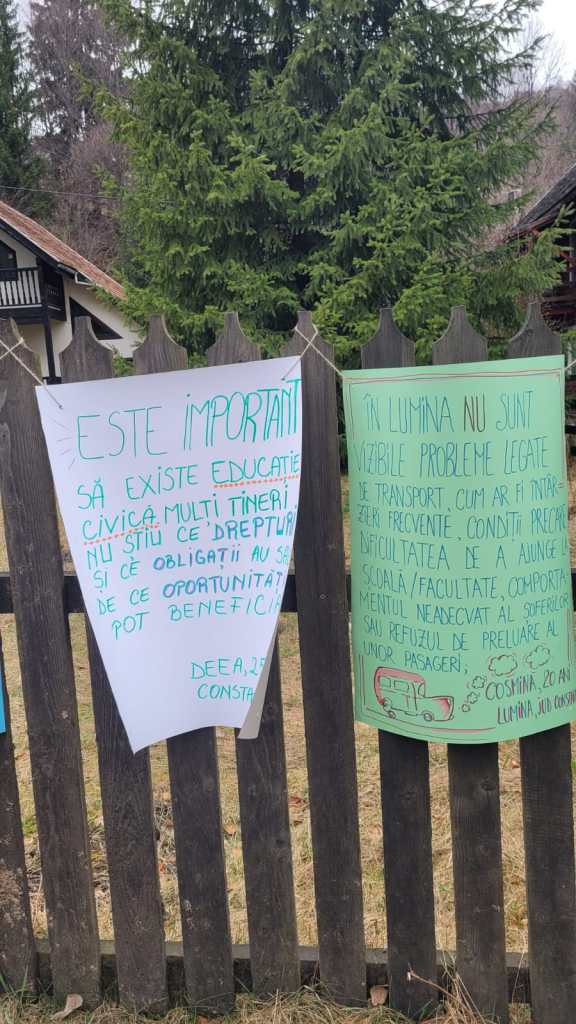 ESTE IMPORTANT
SĂ EXISTE EDUCAȚIE
CIVICĂ. MULȚI TINERI
NU ȘTIU CE DREPTURI
ȘI CE OBLIGAȚII AU SAU
DE CE OPORTUNITĂȚI
POT BENEFICIA
DEEA,
CONSTA
ÎN LUMINA NU SUNT
VIZIBILE PROBLEME LEGATE
DE TRANSPORT, CUM AR FI ÎNTÂR-
ZIERI FRECVENTE, CONDIȚII PRECARE
DIFICULTATEA DE A AJUNGE L
ȘCOALĂ/FACULTATE, COMPORTA
MENTUL NEADECVAT AL ȘOFERILOR
SAU REFUZUL DE PRELUARE AL
UNOR PASAGERI;
COSMINA, 20 ANI
LUMINA, JUD CONST